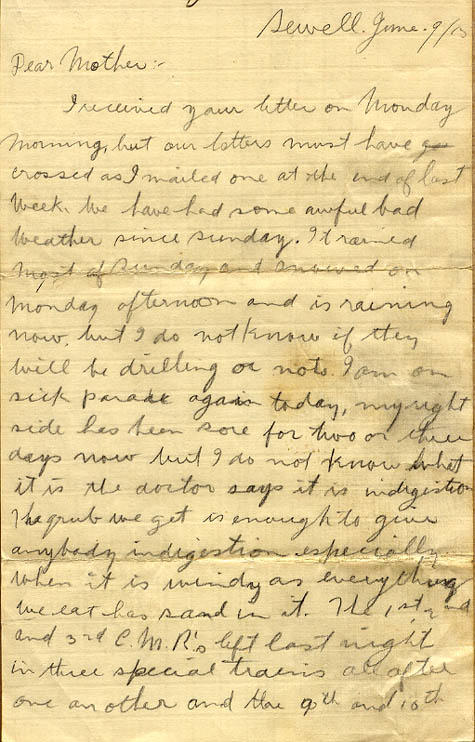 Sewell. June. 9/15
Dear Mother:-
I received your letter on Monday
morning, but our letters must have
crossed as I mailed one at the end of last
week. We have had some awful bad
weather since sunday. It rained
most of Sunday and snowed on
monday afternoon and is raining
now, but I do not know if they
will be drilling or not. I am on
sick parade again today, my right
side has been sore for two or three
days now but I do not know what
it is the doctor says it is indigestion
The grub we get is enough to give
anybody indigestion especially
when it is windy as everything
we eat has sand in it. The 1st, 2nd
and 3rd C.M.R's left last night
in three special trains one after
one another and the 9th and 10th